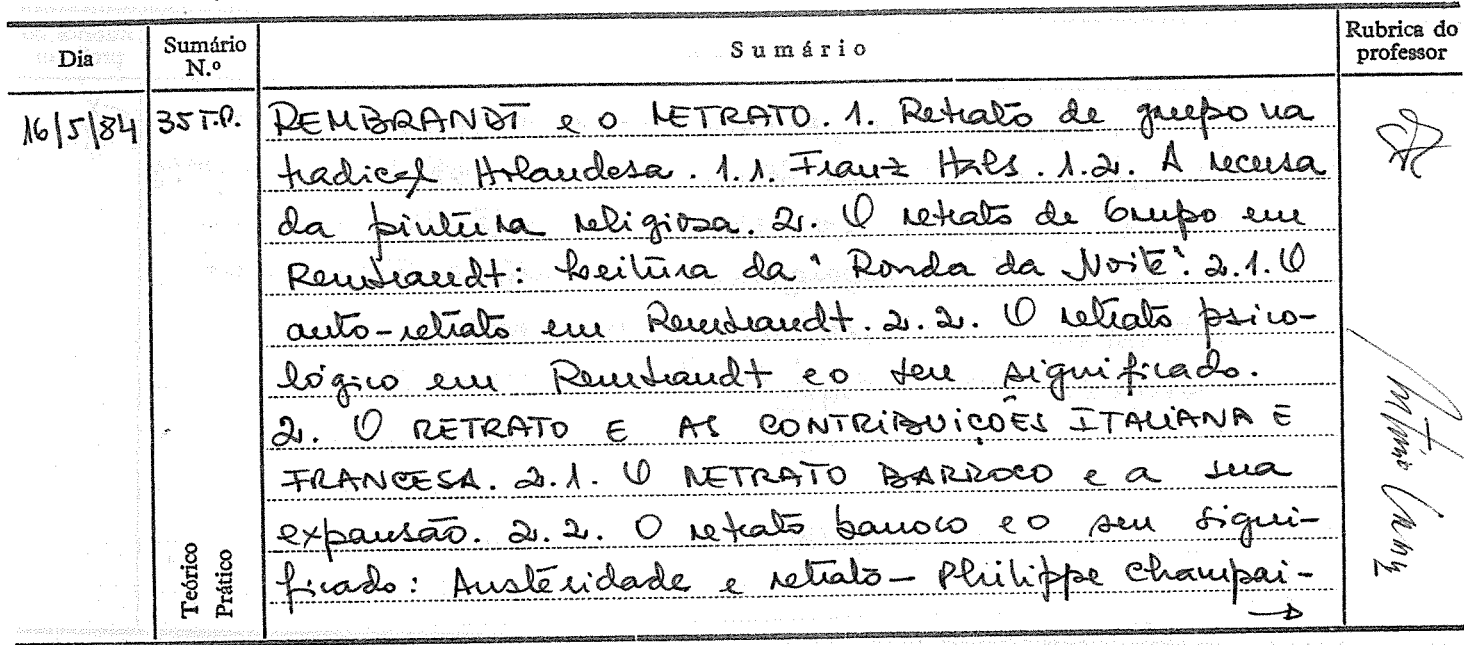 Dia
Sumário
N.º
Sumário
Rubrica do
professor
16/5/84
35 T.P.
REMBRANDT e o RETRATO. 1. Retrato de grupo na
tradição Holandesa. 1.1. Franz Hals. 1.2. A recusa
da pintura religiosa. 2. O retrato de Grupo em
Rembrandt: Leitura da "Ronda da Noite". 2.1. O
auto-retrato em Rembrandt. 2.2. O retrato psico-
lógico em Rembrandt e o seu significado.
2. O RETRATO E AS CONTRIBUIÇÕES ITALIANA E
FRANCESA. 2.1. O RETRATO BARROCO e a sua
expansão. 2.2. O retrato barroco e o seu signi-
ficado: Austeridade e retrato - Philippe Champai-
→
Teórico
Prático
António